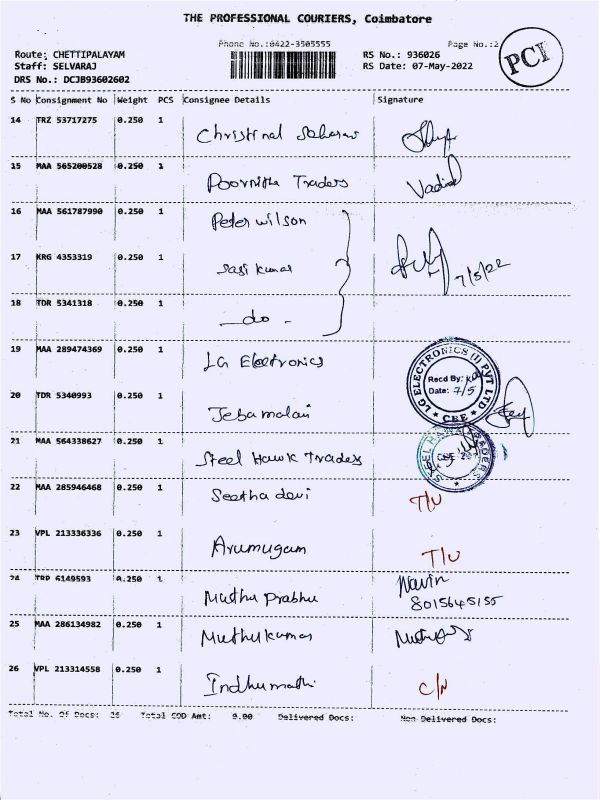 THE PROFESSIONAL COURIERS, Coimbatore
Phone No.:0422-3505555 Page No.:2
PCI
Route: CHETTIPALAYAM RS No.: 936026
Staff: SELVARAJ RS Date: 07-May-2022
DRS No.: DCJB93602602
S No Consignment No Weight PCS Consignee Details Signature
14 TRZ 53717275 0.250 1
15 MAA 565200528 0.250 1
Poornitha Traders
16 MAA 561787990 0.250 1
Peter wilson
17 KRG 4353319 0.250 1
Sasi kumar 7/5/22
18 TDR 5341318 0.250 1
do -
19 MAA 289474369 0.250 1
LG Electronics
LG ELECTRONICS (I) PVT LTD
Recd By:
Date: 7/5
CBE
20 TDR 5340993 0.250 1
Jebamalai
21 MAA 564338627 0.250 1
Steel Hawk Traders
22 MAA 285946468 0.250 1
Seetha devi T/U
23 VPL 213336336 0.250 1
Arumugam T/U
24 TRP 6149593 0.250 1
Muthu prabhu Navin
8015645155
25 MAA 286134982 0.250 1
Muthukumar
26 VPL 213314558 0.250 1
Indhumathi C/N
Total No. Of Docs: 26 Total COD Amt: 0.00 Delivered Docs: Non-Delivered Docs: